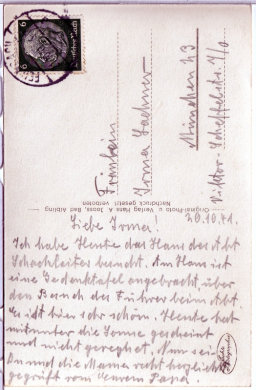 Fräulein
Irma Lachner
München 23
Viktor-Scheffelstr. 7/0
Original-Photo u. Verlag Hans A. Joos, Bad Aibling
Nachdruck gesetzl. verboten
20.10.41.
Liebe Irma!
Ich habe Heute das Haus des Abt
Schachleiter besucht. Am Haus ist
eine Gedenktafel angebracht, über
den Besuch des Führer beim Abt.
Es ist hier sehr schön. Heute hat
mitunter die Sonne gescheint
und nicht geregnet. Nun sei
Du und die Mama recht herzlich
gegrüßt vom Eurem Papa